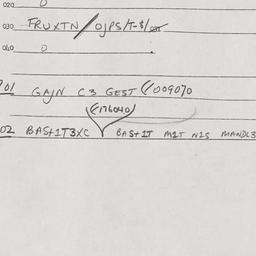 020 0
030 FRUXTN/OJPS/T-$/
040 0
01 GAJN C3 GEST (/009070
(/176040)
02 BAS+1T3XC BAS+1T M1T N1S MANDL3